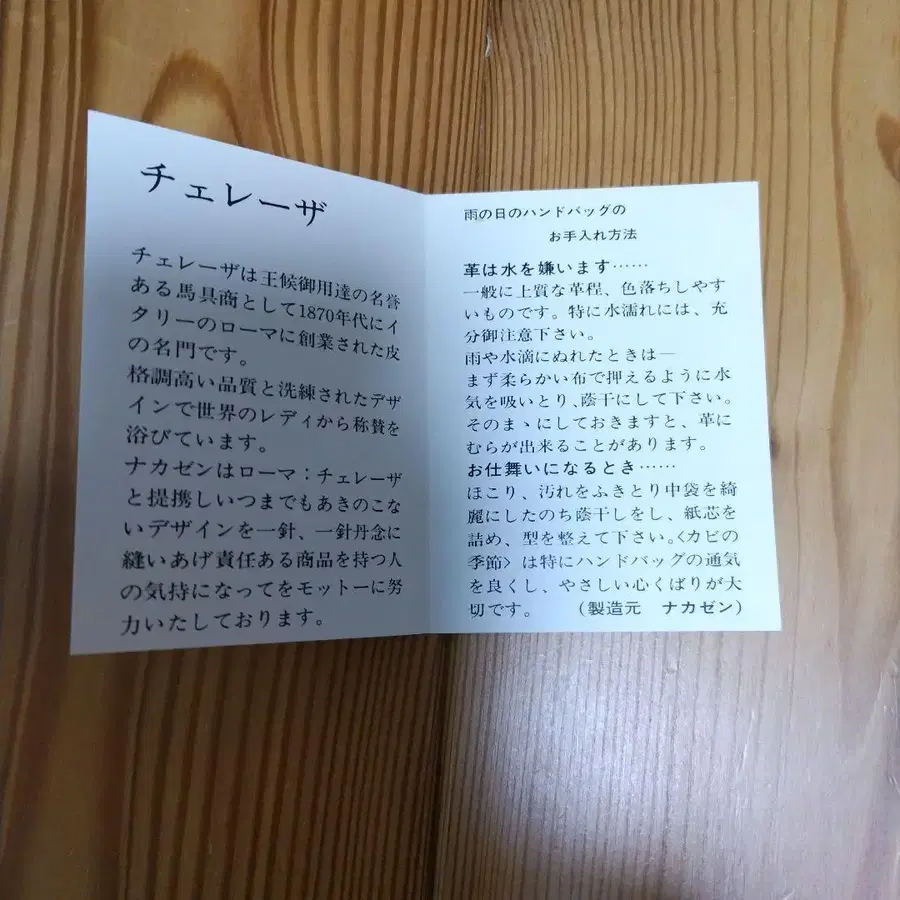 チェレーザ
チェレーザは王候御用達の名誉
ある馬具商として1870年代にイ
タリーのローマに創業された皮
の名門です。
格調高い品質と洗練されたデザ
インで世界のレディから称賛を
浴びています。
ナカゼンはローマ：チェレーザ
と提携しいつまでもあきのこな
いデザインを一針、一針丹念に
縫いあげ責任ある商品を持つ人
の気持になってをモットーに努
力いたしております。
雨の日のハンドバッグの
お手入れ方法
革は水を嫌います……
一般に上質な革程、色落ちしやす
いものです。特に水濡れには、充
分御注意下さい。
雨や水滴にぬれたときは―
まず柔らかい布で押えるように水
気を吸いとり、蔭干にして下さい。
そのまゝにしておきますと、革に
むらが出来ることがあります。
お仕舞いになるとき……
ほこり、汚れをふきとり中袋を綺
麗にしたのち蔭干しをし、紙芯を
詰め、型を整えて下さい。〈カビの
季節〉は特にハンドバッグの通気
を良くし、やさしい心くばりが大
切です。　（製造元　ナカゼン）